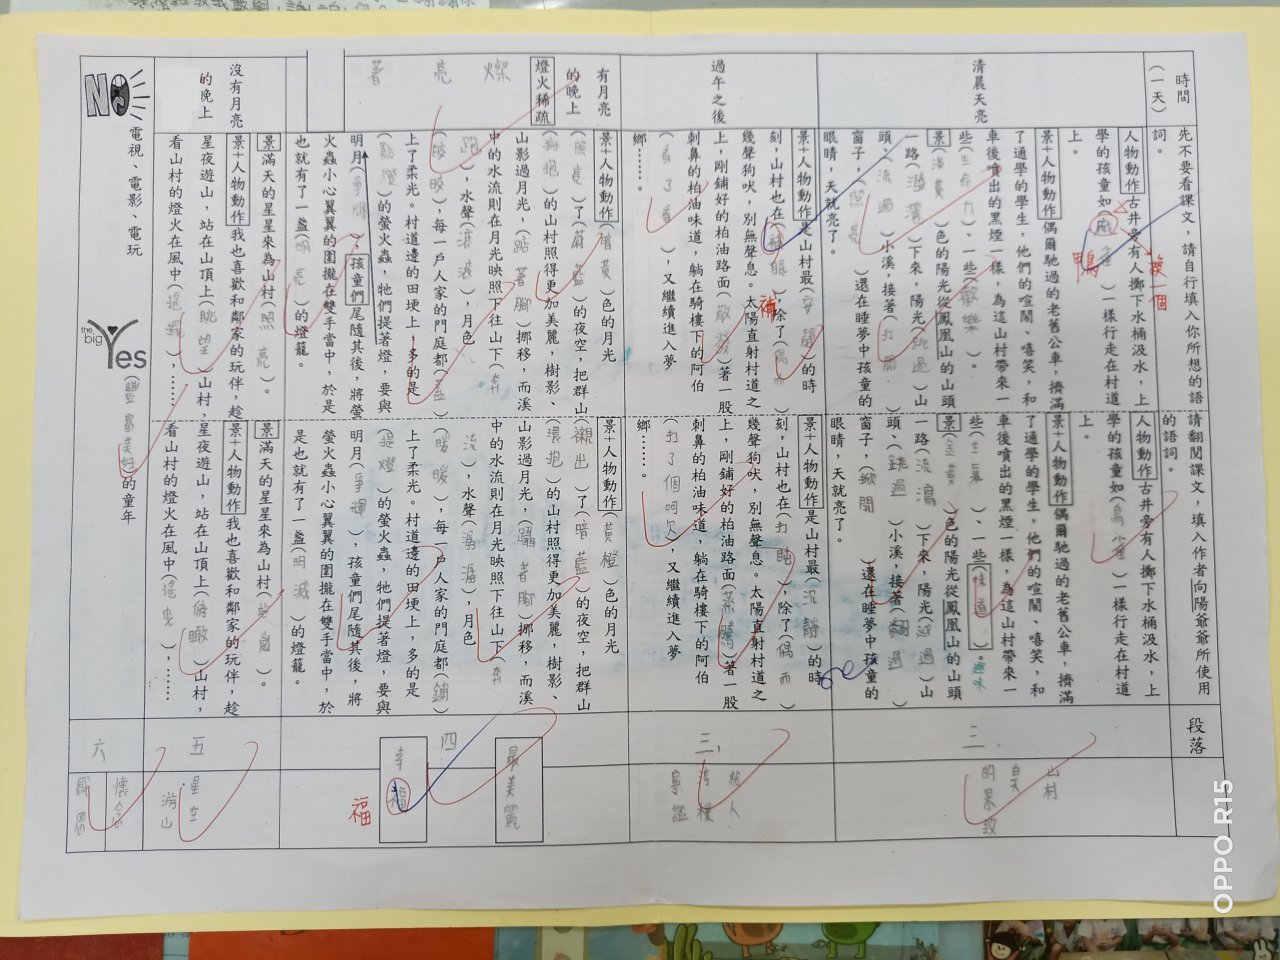 時間
(一天)
先不要看課文，請自行填入你所想的語
詞。
請翻閱課文，填入作者向陽爺爺所使用
的語詞。
段落
清晨天亮
人物動作古井旁有人擲下水桶汲水，上
學的孩童如( )一樣行走在村道
上。
鴨
換一個
景+人物動作偶爾馳過的老舊公車，擠滿
了通學的學生，他們的喧鬧、嘻笑，和
車後噴出的黑煙一樣，為這山村帶來一
些(生命力)、一些(歡樂)。
景(淺黃)色的陽光從鳳凰山的山頭
一路( )下來，陽光(跳過)山
頭(流過)小溪，接著(打開)
窗子，(照亮)還在睡夢中孩童的
眼睛，天就亮了。
人物動作古井旁有人擲下水桶汲水，上
學的孩童如( )一樣行走在村道
上。
景+人物動作偶爾馳過的老舊公車，擠滿
了通學的學生，他們的喧鬧、嘻笑，和
車後噴出的黑煙一樣，為這山村帶來一
些( )、一些(味道)。趣味
景(金黃)色的陽光從鳳凰山的山頭
一路(流瀉)下來，陽光(越過)山
頭、(跳過)小溪，接著(翻過)
窗子，(掀開)還在睡夢中孩童的
眼睛，天就亮了。
二、
山村
的景致
過午之後
景+人物動作是山村最(安靜)的時
刻，山村也在( 眠)，除了(偶爾)
幾聲狗吠，別無聲息。太陽直射村道之
上，剛鋪好的柏油路面(散發)著一股
刺鼻的柏油味道，躺在騎樓下的阿伯
(看了看)，又繼續進入夢
鄉……。
補
景+人物動作是山村最(沉靜)的時
刻，山村也在(打盹)，除了(偶而)
幾聲狗吠，別無聲息。太陽直射村道之
上，剛鋪好的柏油路面(蒸騰)著一股
刺鼻的柏油味道，躺在騎樓下的阿伯
(打了個呵欠)，又繼續進入夢
鄉……。
三、
寧謐
有月亮
的晚上
燈火稀疏
燦亮著
景+人物動作( 黃)色的月光
(照亮)了(蔚藍)的夜空，把群山
(擁抱)的山村照得更加美麗，樹影、
山影過月光，(踮著腳)挪移，而溪
中的水流則在月光映照下往山下(奔
跑)，水聲( )，月色
(皎皎)，每一戶人家的門庭都(蓋)
上了柔光。村道邊的田埂上，多的是
(點燈)的螢火蟲，牠們提著燈，要與
明月(爭輝)，孩童們尾隨其後，將螢
火蟲小心翼翼的圍攏在雙手當中，於是
也就有了一盞(明亮)的燈籠。
景+人物動作(黃橙)色的月光
(襯出)了(暗藍)的夜空，把群山
(環抱)的山村照得更加美麗，樹影、
山影過月光，(躡著腳)挪移，而溪
中的水流則在月光映照下往山下(奔
流)，水聲(潺潺)，月色
(暖暖)，每一戶人家的門庭都(鋪)
上了柔光。村道邊的田埂上，多的是
(提燈)的螢火蟲，牠們提著燈，要與
明月(爭輝)，孩童們尾隨其後，將
螢火蟲小心翼翼的圍攏在雙手當中，於
是也就有了一盞(明滅)的燈籠。
四
最美麗
幸福
福
沒有月亮
的晚上
景滿天的星星來為山村(照亮)。
景+人物動作我也喜歡和鄰家的玩伴，趁
星夜遊山，站在山頂上(眺望)山村，
看山村的燈火在風中( )，……
景滿天的星星來為山村( )。
景+人物動作我也喜歡和鄰家的玩伴，趁
星夜遊山，站在山頂上(俯瞰)山村，
看山村的燈火在風中(搖曳)，……
五
星空
游山
NO
電視、電影、電玩
the big Yes
(豐富美好)的童年
六
懷念
感恩
OPPO R15